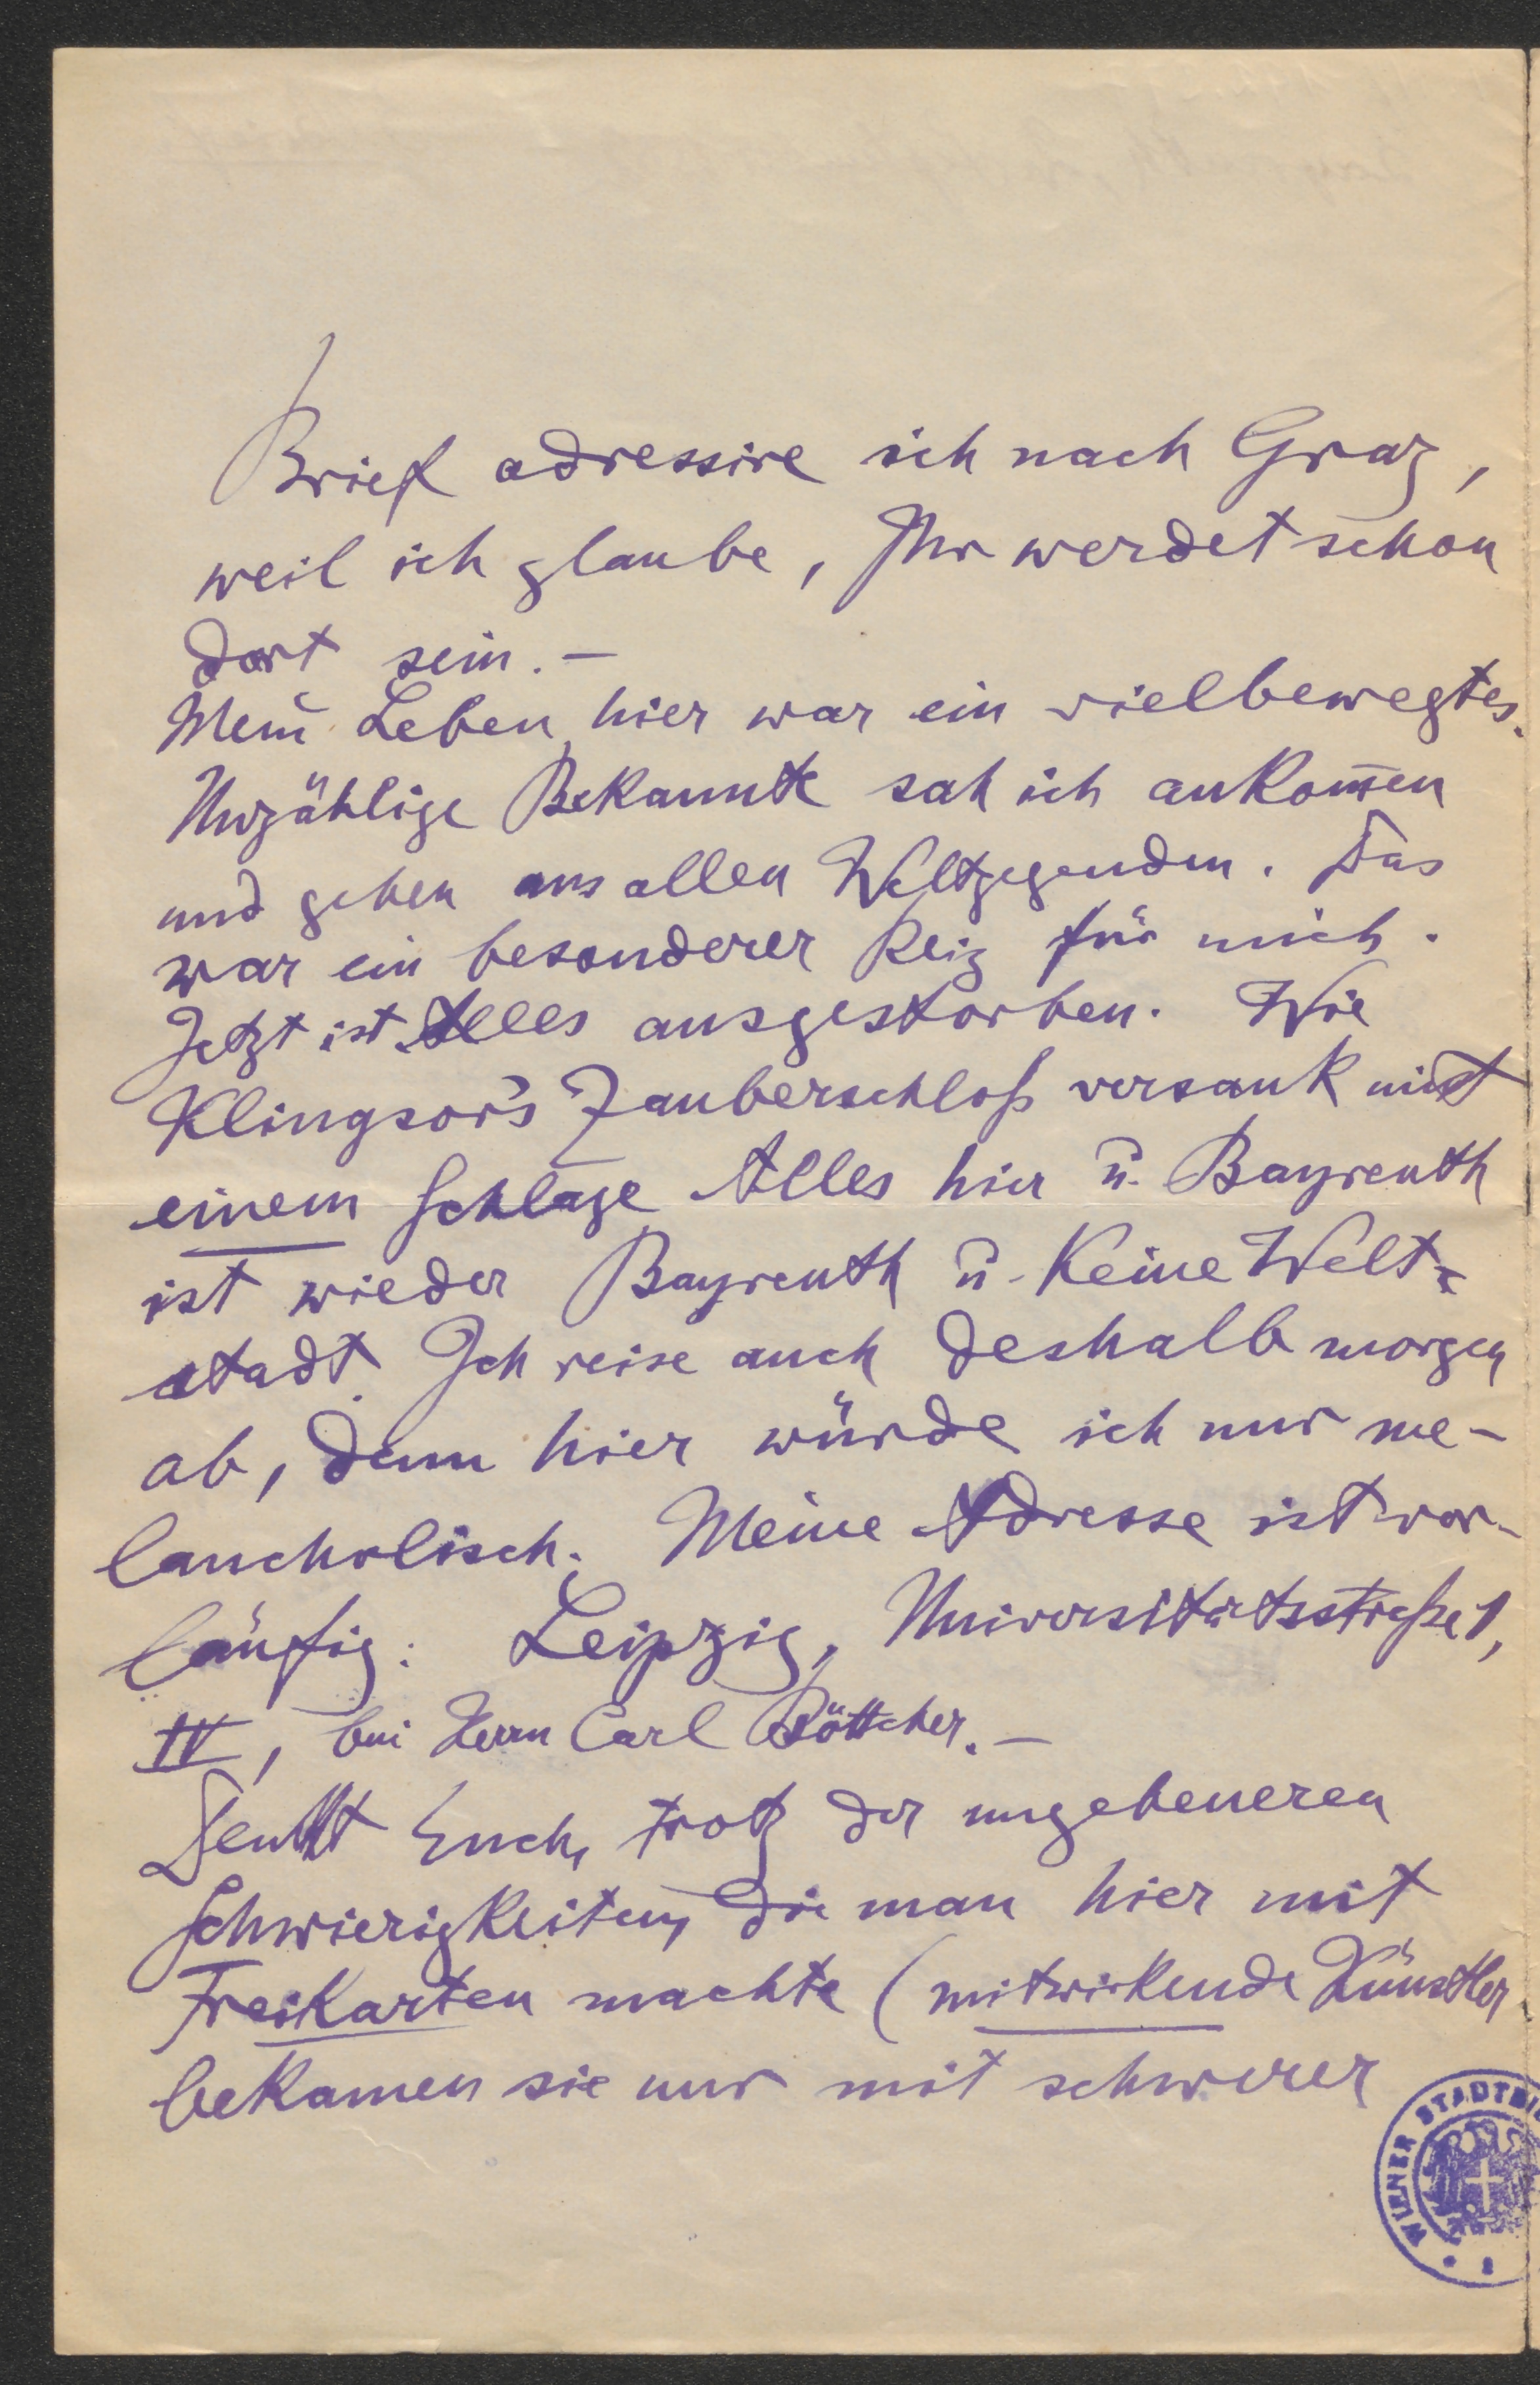 Brief adressire ich nach Graz,
weil ich glaube, Ihr werdet schon
dort sein. –
Mein Leben hier war ein vielbewegtes.
Unzählige Bekannte sah ich ankom̅en
und gehen aus allen Weltgegenden. Das
war ein besonderer Reiz für mich.
Jetzt ist Alles ausgestorben. Wie
Klingsor's Zauberschloß versank mit
einem Schlage Alles hier u. Bayreuth
ist wieder Bayreuth u. keine Welt-
stadt. Ich reise auch deshalb morgen
ab, denn hier würde ich nur me-
lancholisch. Meine Adresse ist vor-
läufig: Leipzig, Universitätsstraße 1,
IV, bei Herrn Carl Böttcher. –
Denkt Euch, trotz der ungeheueren
Schwierigkeiten, die man hier mit
Freikarten machte (mitwirkende Künstler
bekamen sie nur mit schwerer
WIENER STADTBI